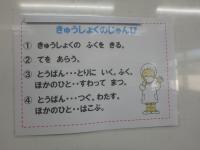 きゅうしょくのじゅんび
① きゅうしょくの ふくを きる。
② てを あらう。
③ とうばん・・・とりに いく。ふく。
ほかのひと・・すわって まつ。
④ とうばん・・・つぐ。わたす。
ほかのひと・・はこぶ。